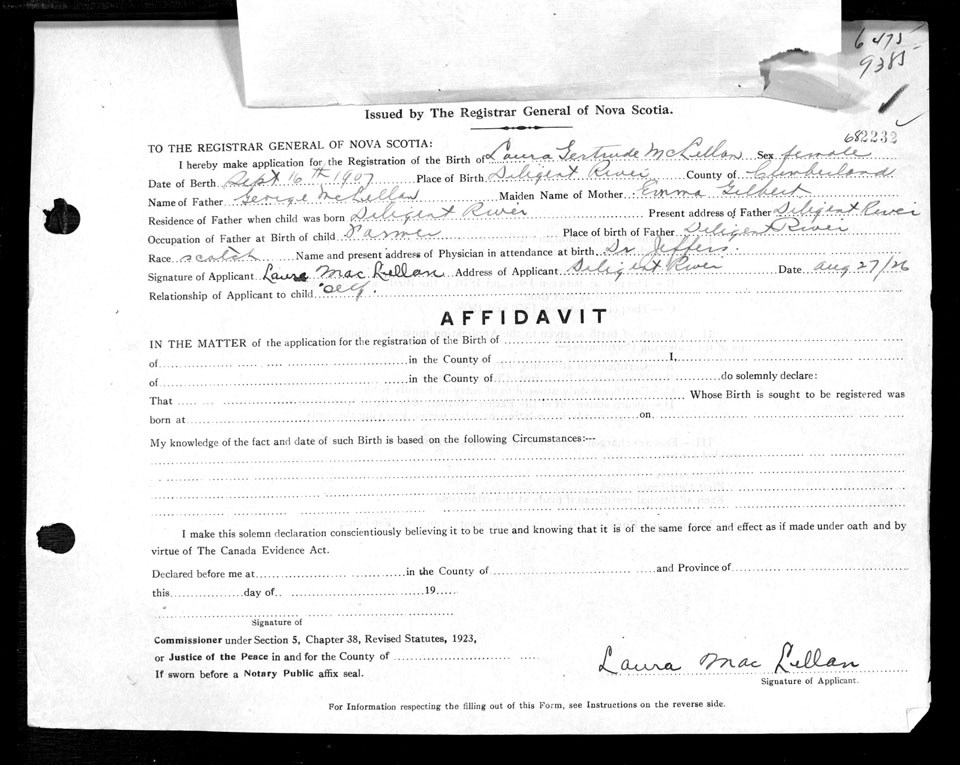 6475
9385
Issued by The Registrar General of Nova Scotia.
682232
TO THE REGISTRAR GENERAL OF NOVA SCOTIA:
I hereby make application for the Registration of the Birth of Laura Gertrude McLellan Sex female
Date of Berth Sept 16th 1907 Place of Birth Diligent River County of Cumberland
Name of Father George McLellan Maiden Name of Mother Emma Gilbert
Residence of Father when child was born Diligent River Present address of Father Diligent River
Occupation of Father at Birth of child Farmer Place of birth of Father Diligent River
Race scotch Name and present address of Physician in attendance at birth Dr Jeffers.
Signature of Applicant Laura MacLellan Address of Applicant Diligent River Date Aug 27/26
Relationship of Applicant to child self.
AFFIDAVIT
IN THE MATTER of the application for the registration of the Birth of
of in the County of I,
of in the County of do solemnly declare:
That Whose Birth is sought to be registered was
born at on
My knowledge of the fact and date of such Birth is based on the following Circumstances:---
I make this solemn declaration conscientiously believing it to be true and knowing that it is of the same force and effect as if made under oath and by
virtue of The Canada Evidence Act.
Declared before me at in the County of and Province of
this day of 19
Signature of
Commissioner under Section 5, Chapter 38, Revised Statutes, 1923,
or Justice of the Peace in and for the County of
If sworn before a Notary Public affix seal.
Laura MacLellan
Signature of Applicant.
For Information respecting the filling out of this Form, see Instructions on the reverse side.